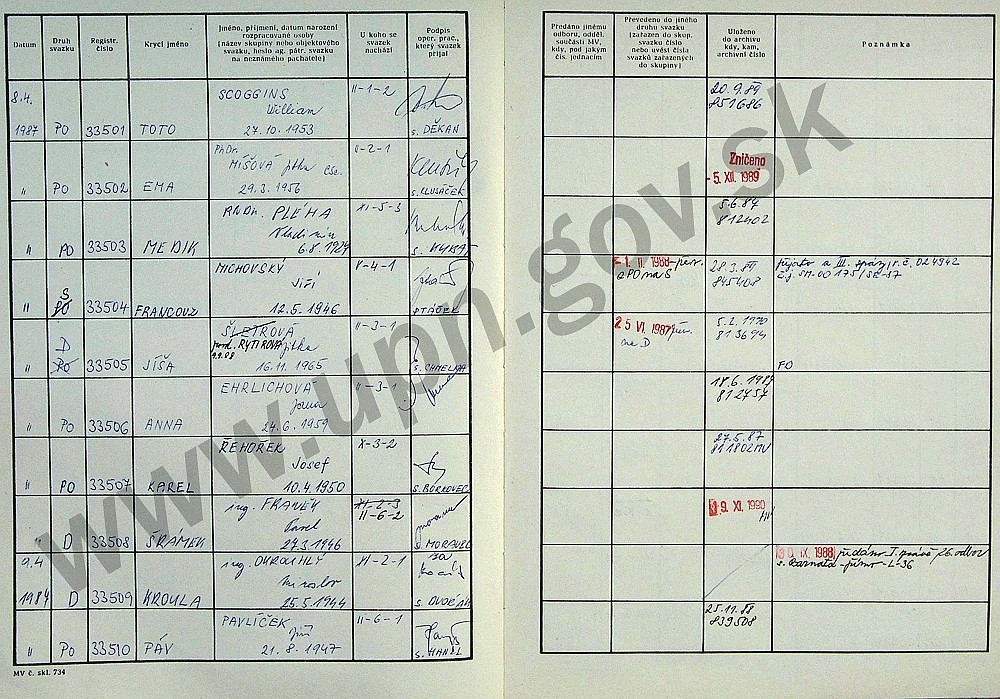 Datum
Druh svazku
Registr. číslo
Krycí jméno
Jméno, příjmení, datum narození
rozpracované osoby
(název skupiny nebo objektového
svazku, heslo ag. pátr. svazku
na neznámého pachatele)
U koho se
svazek
nachází
Podpis
oper. prac.,
který svazek
přijal
Předáno jinému
odboru, odděl.
součásti MV,
kdy, pod jakým
čís. jednacím
Převedeno do jiného
druhu svazku
(zařazen do skup.
svazku číslo
nebo uvést čísla
svazků zařazených
do skupiny)
Uloženo
do archivu
kdy, kam,
archivní číslo
Poznámka
8.4.
1987 PO 33501 TOTO
SCOGGINS
William
27.10.1953
II-1-2
s. DĚKAN
20.9.89
851686
" PO 33502 EMA
PhDr.
MÍŠOVÁ Jitka CSc.
29.3.1956
II-2-1
s. KLUSÁČEK
Zničeno
-5. XII. 1989
" PO 33503 MEDIK
RNDr. PLÉHA
Vladimír
6.8.1929
XI-5-3
5.6.87
812402
" S
PO 33504 FRANCOUZ
MICHOVSKÝ
Jiří
12.5.1946
V-4-1
PTÁČEK
-1. II. 1988
z PO na S
28.3.89
845408
" D
PO 33505 JÍŠA
ŠLETROVÁ
RYTÍŘOVÁ Jitka
16.11.1965
II-3-1
s. CHMELKA
25 VI. 1987
na D
5.2.1990
813694
FO
" PO 33506 ANNA
EHRLICHOVÁ
Jana
24.6.1959
II-3-1
18.6.1987
812757
" PO 33507 KAREL
ŘEHOŘEK
Josef
10.4.1950
X-3-2
s. BORKOVEC
27.5.87
811802MV
" D 33508 ŠRÁMEK
ing. FRANĚK
Pavel
27.3.1946
II-6-2
s. MORAVEC
9. XI. 1990
9.4
1987 D 33509 KROULA
ing. OKROUHLÝ
Miroslav
25.5.1944
XI-2-1
za
s. DVOŘÁK
30. IX. 1988 předáno I. správě 26. odbor
" PO 33510 PÁV
PAVLÍČEK
Jiří
21.8.1947
II-6-1
s. HANZL
25.11.88
839508
MV č. skl. 734
www.upn.gov.sk